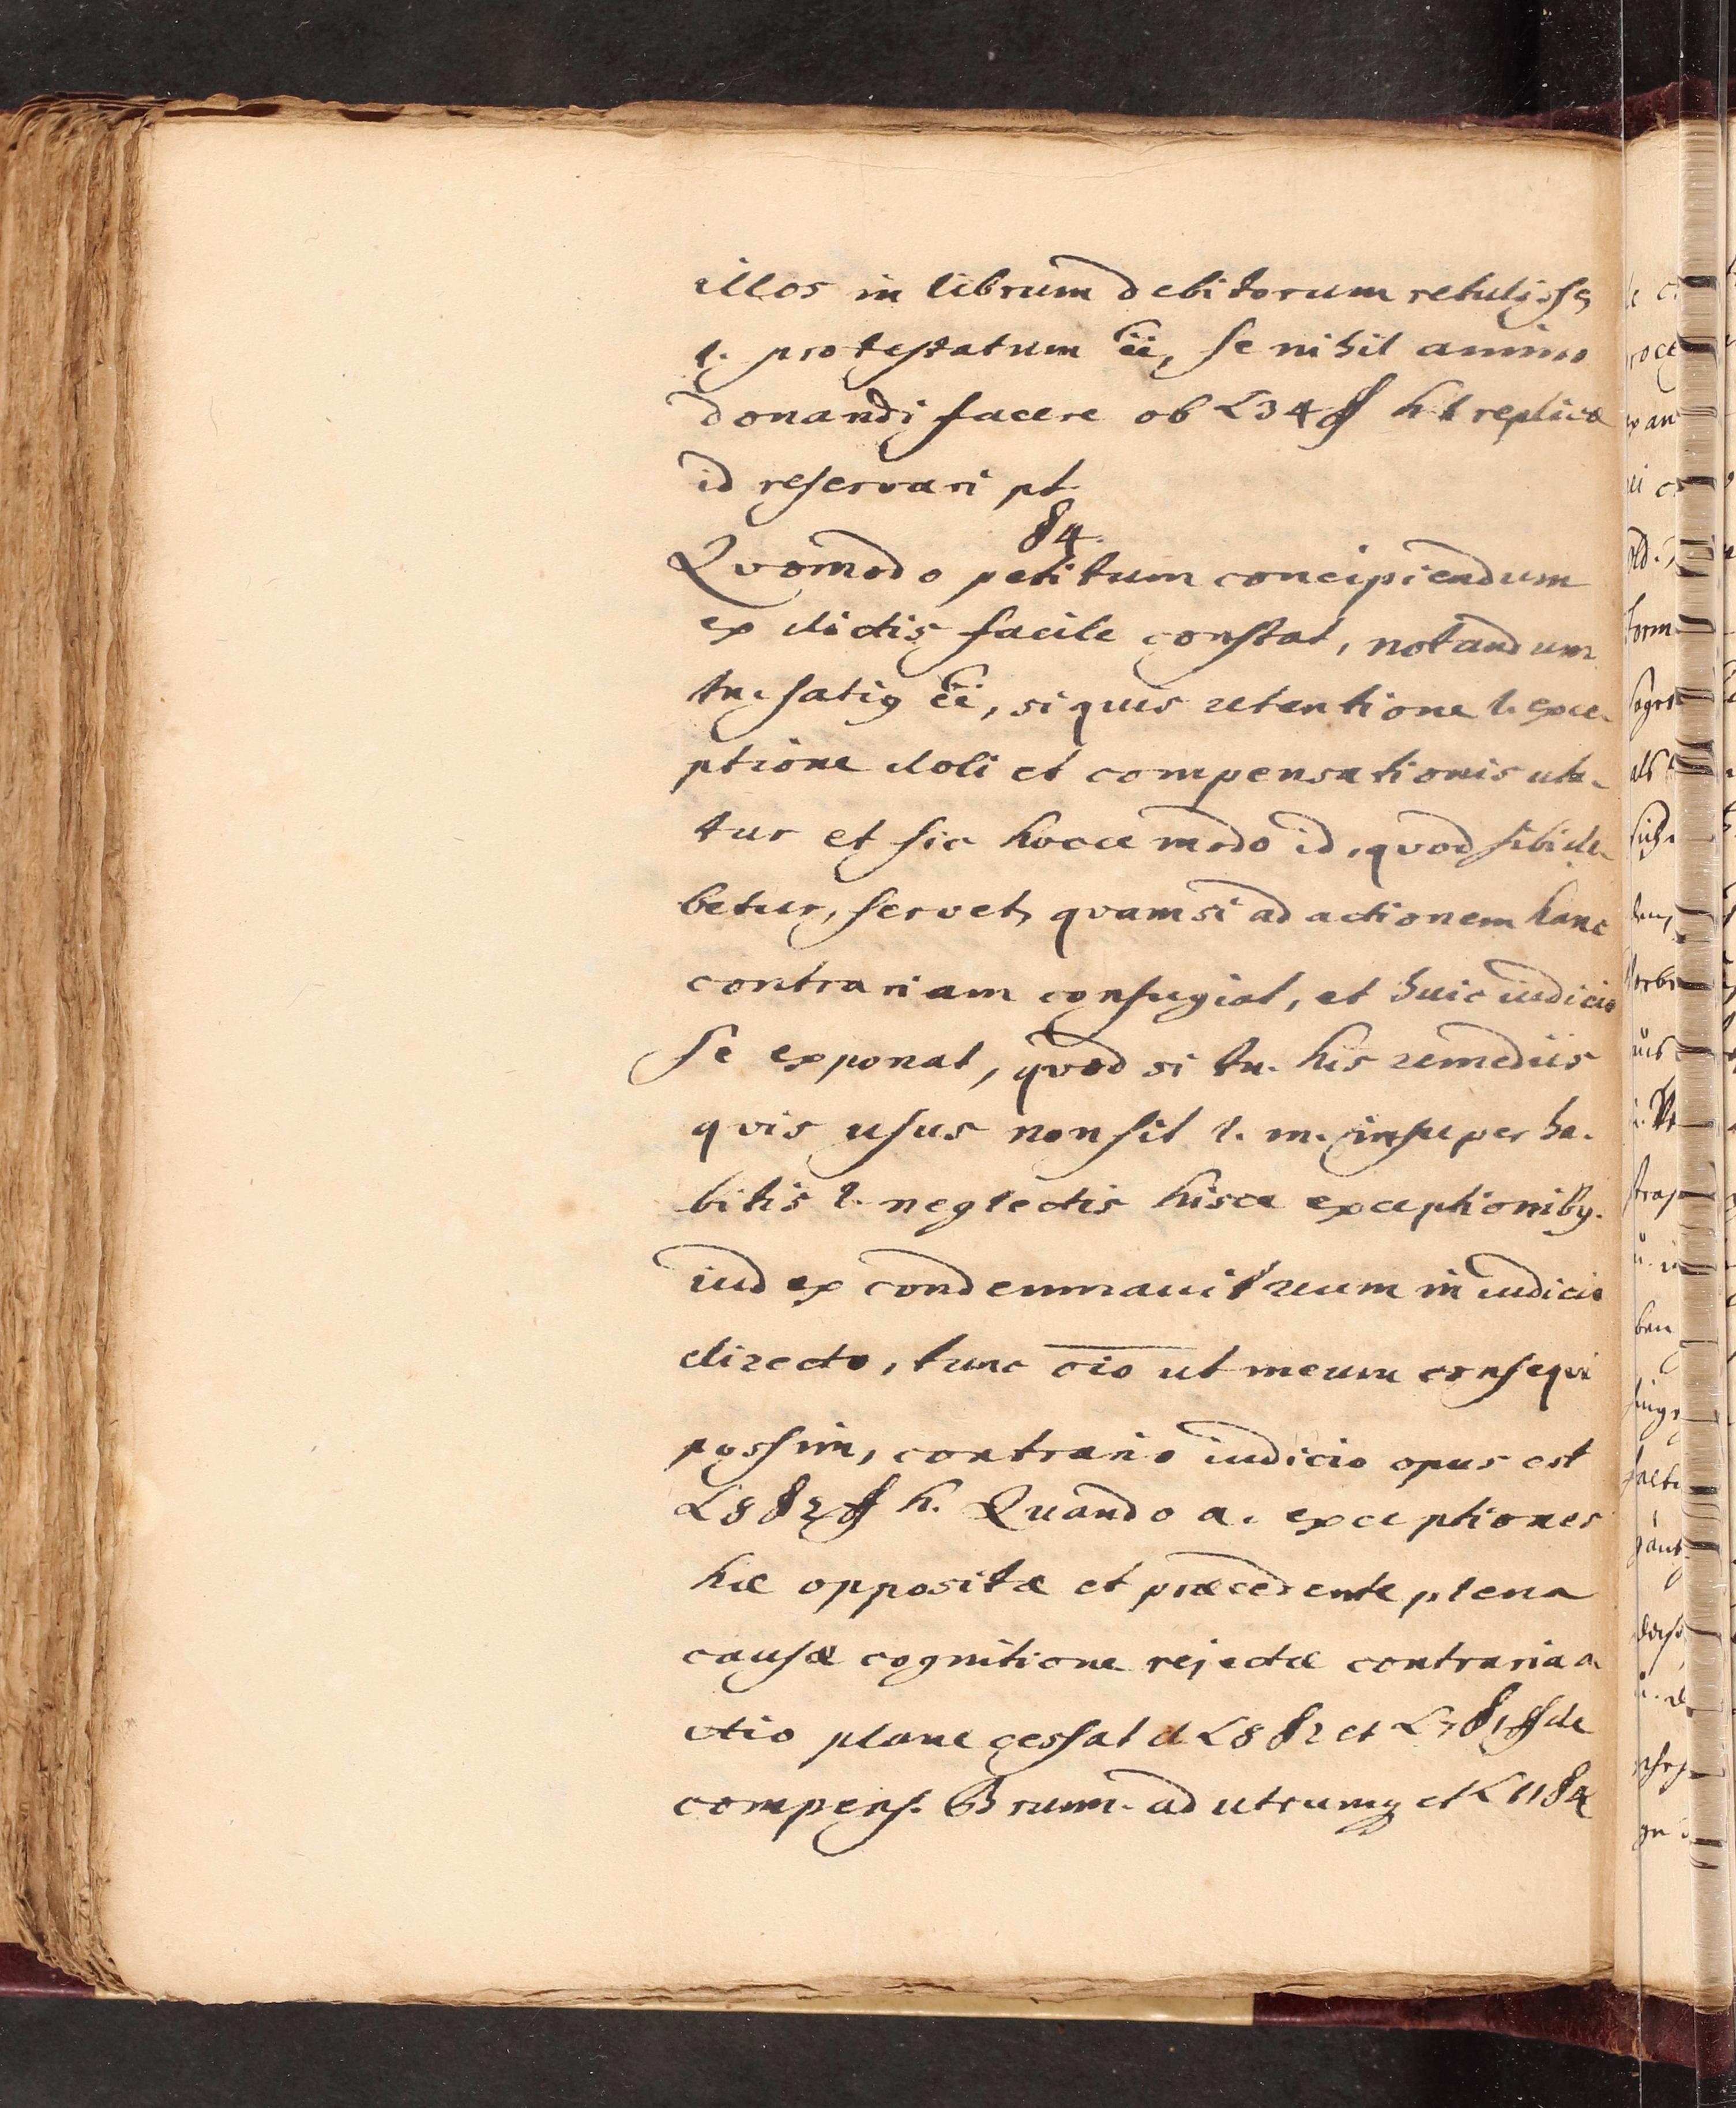 illos in librum debitorum retulisse,
l. protestatum ẽẽi, se nihil animo
donandi facere ob L 34 ff h t replicæ
id reservari pt.
84.
Qvomodo petitum concipiendum
ex dictis facile constat, notandum
tn. satig ẽẽi, si quis retentione l. exce-
ptione doli et compensationis uta-
tur et sic hocce modo id, qvod sibi de-
betur, servet, qvam si ad actionem hanc
contrariam confugiat, et huic iudicio
se exponat, qvod si tn. his remediis
qvis usus non sit l. m. insuper ha-
bitis l. neglectis hisce exceptioniby.
iudex condemnavit reum in iudicio
directo, tunc oio ut meum conseqvi
possim, contrario iudicio opus est
L 8 § 2 ff h. Quando a. exceptiones
hæ oppositæ et præcedente plena
causæ cognitione rejectæ contraria a-
ctio plane cessat d L 8 § 2 et L 7 § 1 ff de
compens. Brunn. ad utrumq et L 11 § 4